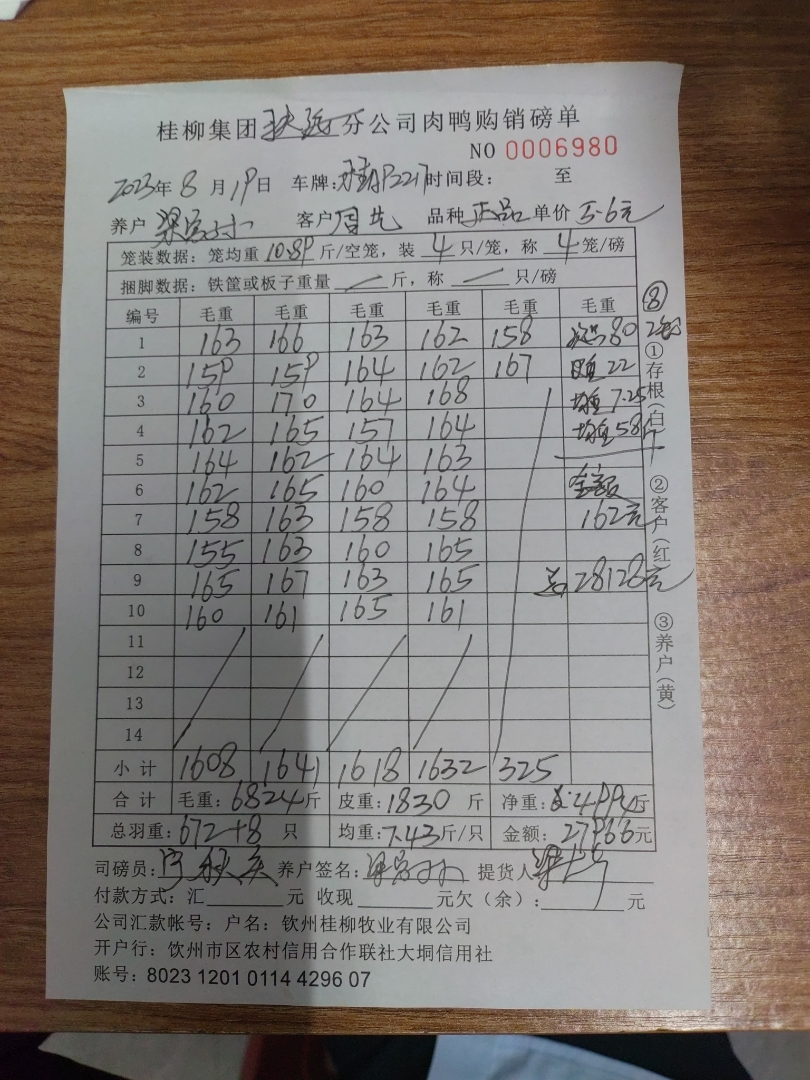 桂柳集团 分公司肉鸭购销磅单
NO 0006980
2023年 8 月 19日 车牌: 时间段: 至
养户 客户 周先 品种 正品 单价 5.6元
笼装数据: 笼均重 10.89 斤/空笼, 装 4 只/笼, 称 4 笼/磅
捆脚数据: 铁筐或板子重量 斤, 称 只/磅
编号 毛重 毛重 毛重 毛重 毛重 毛重 ⑧
1 163 166 163 162 158 80
2 159 159 164 162 167 22
3 160 170 164 168 7.25
4 162 165 157 164 均重 58斤
5 164 162 164 163
6 162 165 160 164 金额
7 158 163 158 158 162元
8 155 163 160 165
9 165 167 163 165 总 28128元
10 160 161 165 161
11
12
13
14
小计 1608 1641 1618 1632 325
合计 毛重: 6824斤 皮重: 1830 斤 净重: 4994斤
总羽重: 672+8 只 均重: 7.43斤/只 金额: 27966元
司磅员: 养户签名: 提货人
付款方式: 汇 元 收现 元欠(余): 元
公司汇款帐号: 户名: 钦州桂柳牧业有限公司
开户行: 钦州市区农村信用合作联社大垌信用社
账号: 8023 1201 0114 4296 07
①存根(白) ②客户(红) ③养户(黄)